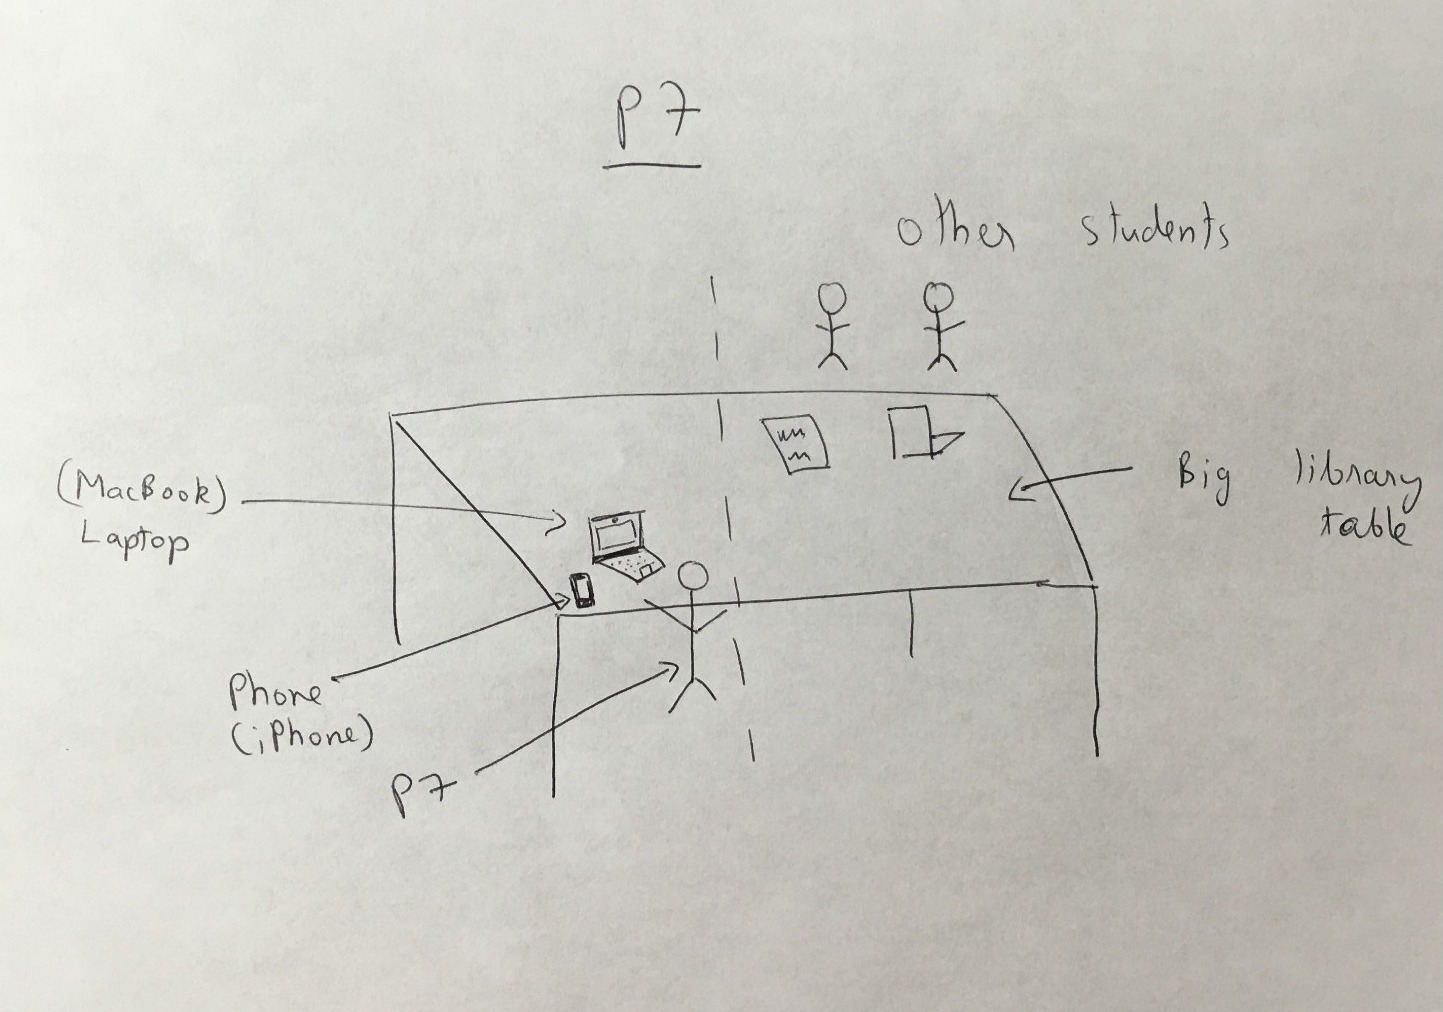 P7
other students
(MacBook)
Laptop
Big library
table
Phone
(iPhone)
P7